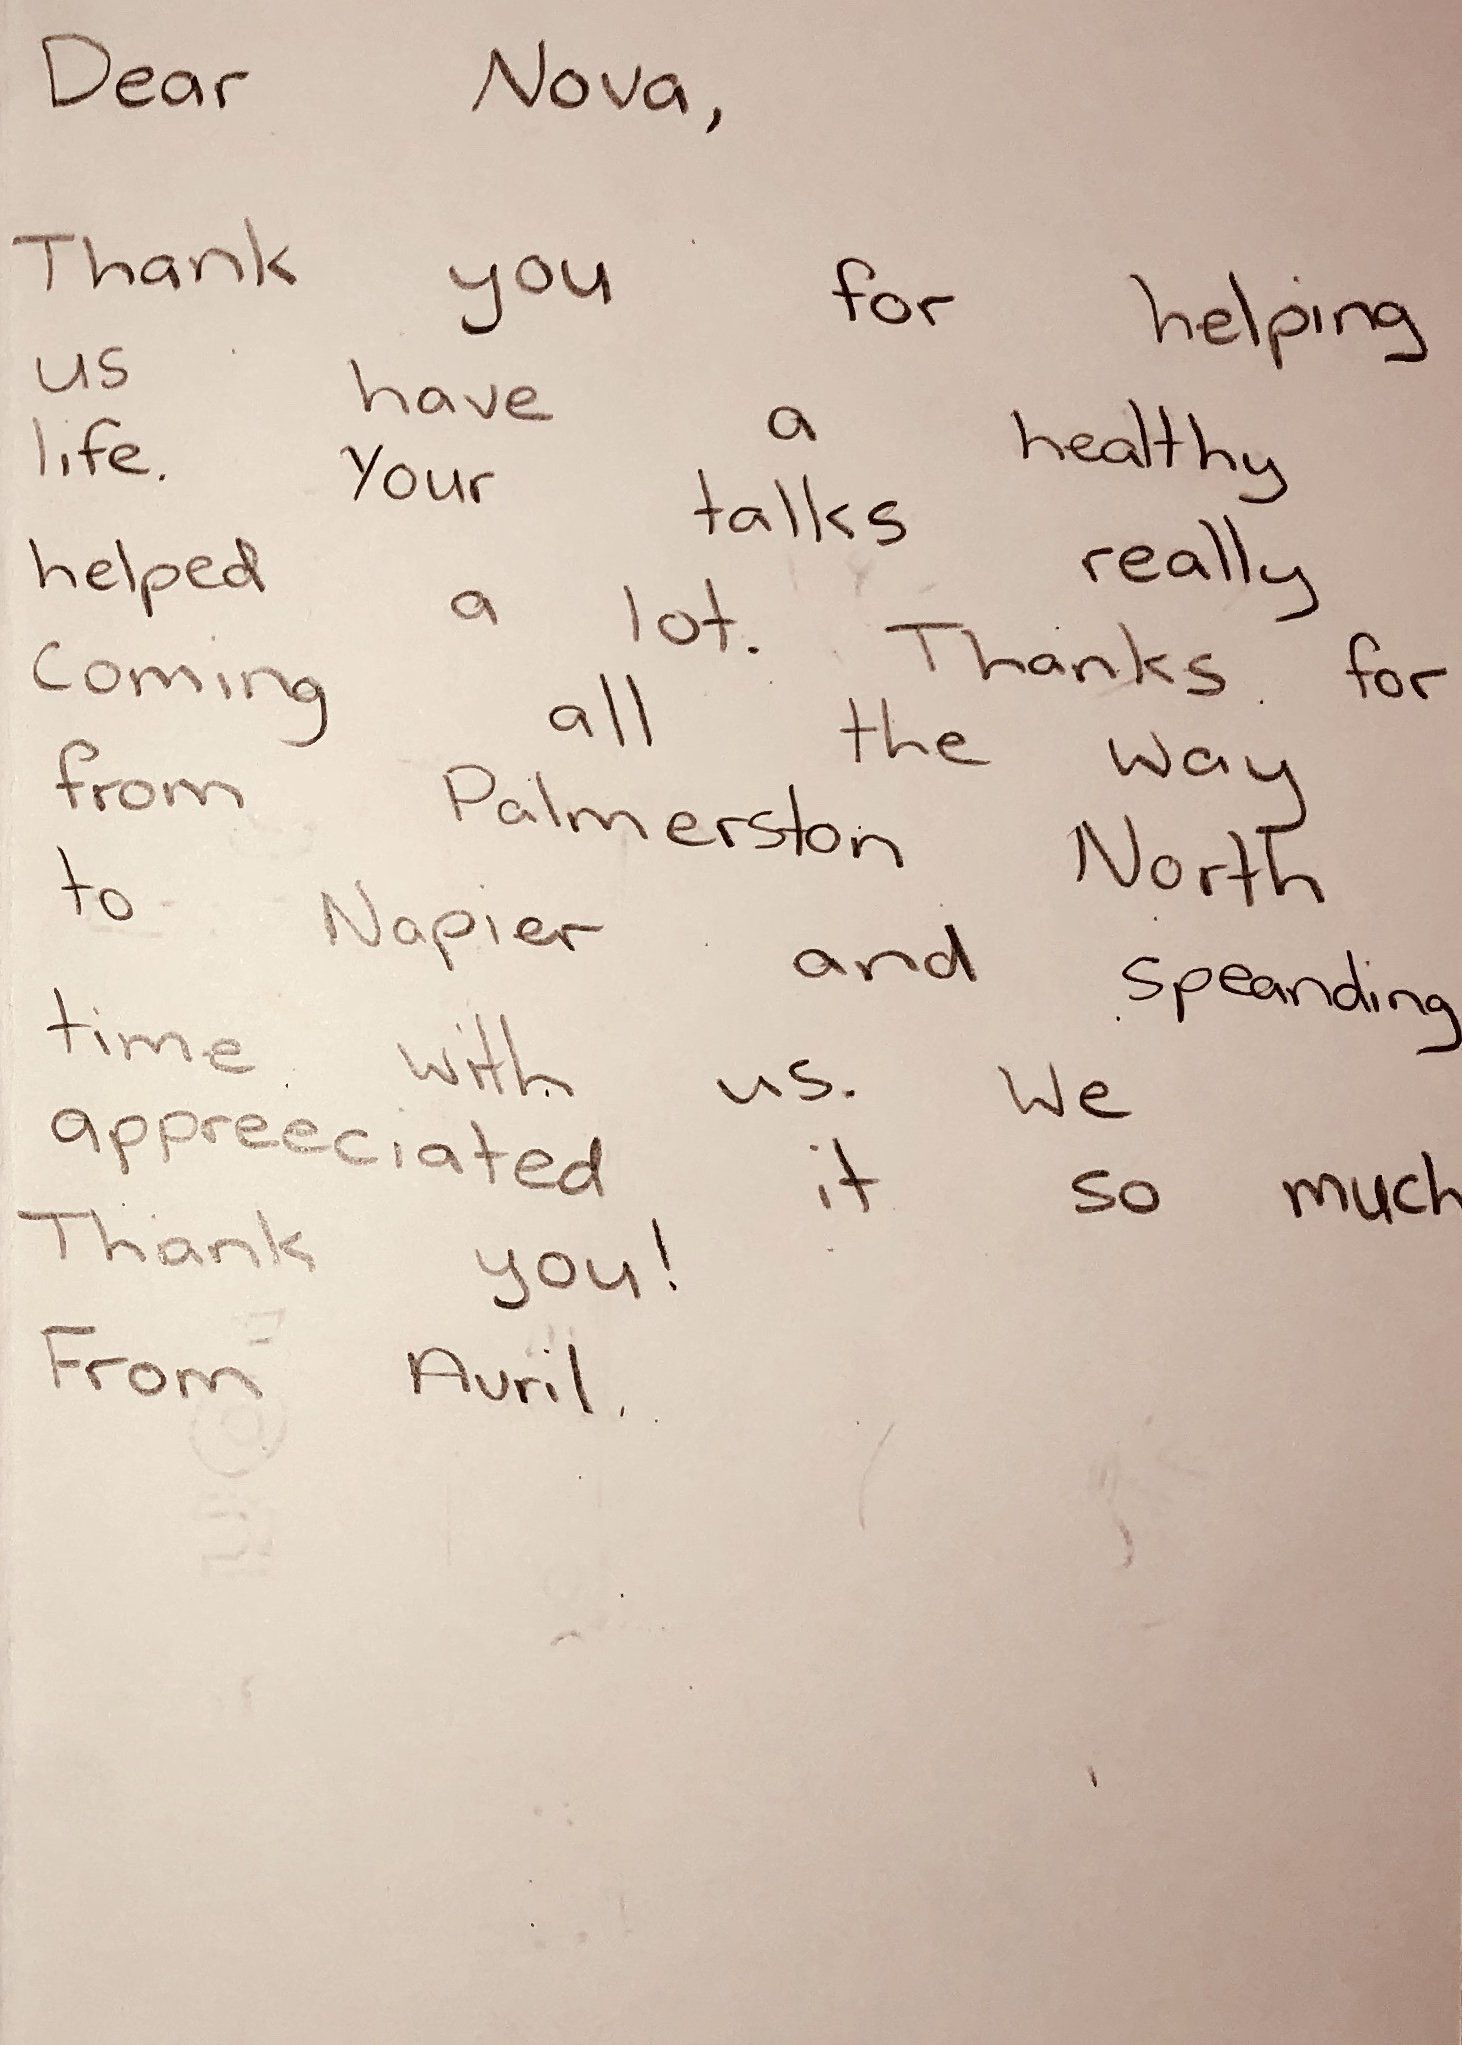 Dear Nova,
Thank you for helping
us have a healthy
life. Your talks really
helped a lot. Thanks for
Coming all the way
from Palmerston North
to Napier and speanding
time with us. We
appreeciated it so much
Thank you!
From Avril.